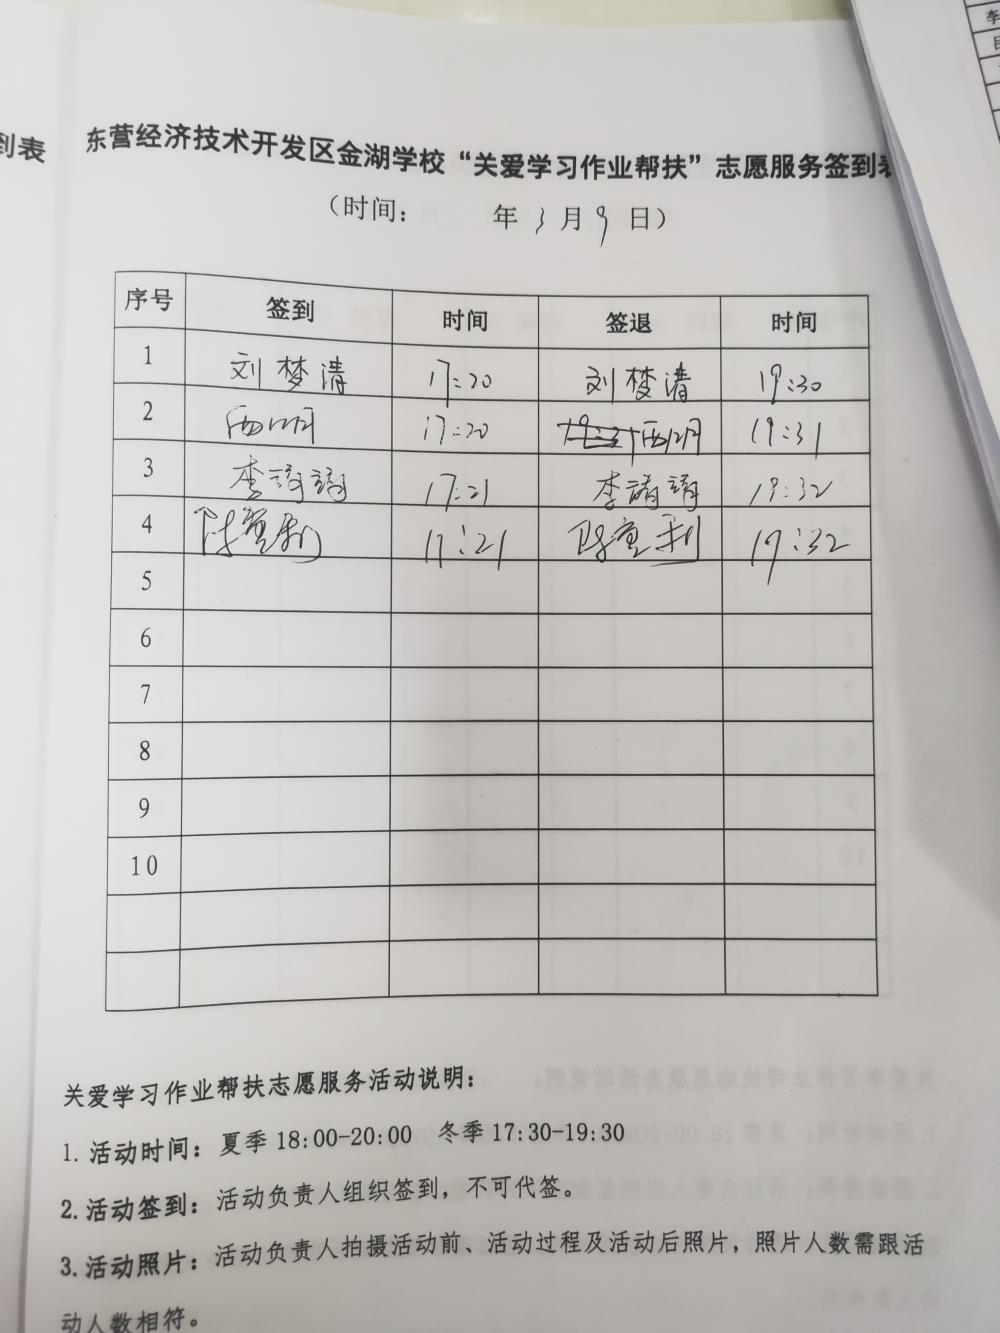 到表
东营经济技术开发区金湖学校“关爱学习作业帮扶”志愿服务签到表
（时间： 年 3 月 9 日）
序号 签到 时间 签退 时间
1 刘梦清 17:20 刘梦清 19:30
2 17:20 19:31
3 李 17:21 李 19:32
4 陈 17:21 陈 19:32
5
6
7
8
9
10
关爱学习作业帮扶志愿服务活动说明：
1. 活动时间：夏季 18:00-20:00 冬季 17:30-19:30
2. 活动签到：活动负责人组织签到，不可代签。
3. 活动照片：活动负责人拍摄活动前、活动过程及活动后照片，照片人数需跟活
动人数相符。